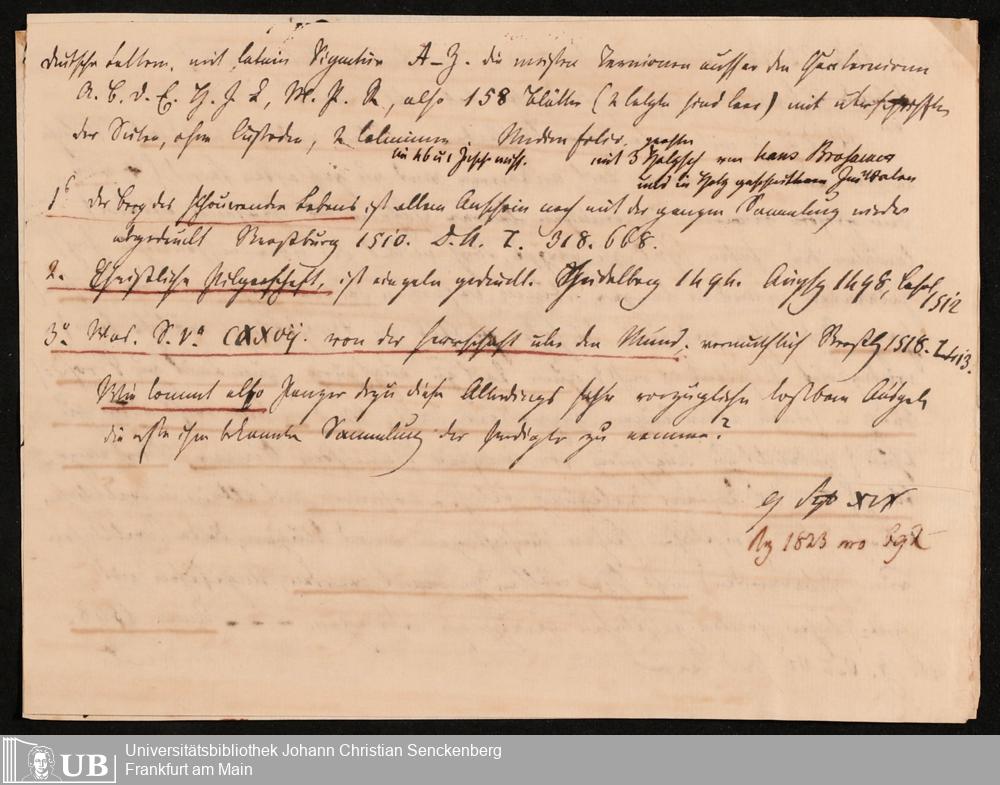 deutsche Lettern, mit latein Signatur A–Z. die meisten Ternionen ausser den Quaternionen
A. C. D. E. H. J. L, M. P. R, also 158 Blätter (2 letzte sind leer) mit
der Seiten, ohne Custoden, 2 Columnen
mit 3 grossen Holzsch von Hans Brosamer
und in Holz geschnittenen Initialen
1 der Berg des schouwenden Lebens, ist allem Anschein nach mit der ganzen Sammlung wieder
abgedruckt Straßburg 1510. D. A. I. 318. 668.
2. Christliche Pilgerschaft, ist einzeln gedruckt. Heidelberg 1494. Augsbg 1498, Basel
1512
3. Was. S. CXXVij. von der Herrschaft über den Mund, vermuthlich Straßbg 1518.
Wie kommt also Panzer dazu diese Allerdings sehr vorzügliche kostbare Ausgabe
die erste ihm bekannte Sammlung der Predigte zu nennen?
XIX
1823 no
Universitätsbibliothek Johann Christian Senckenberg
Frankfurt am Main
UB